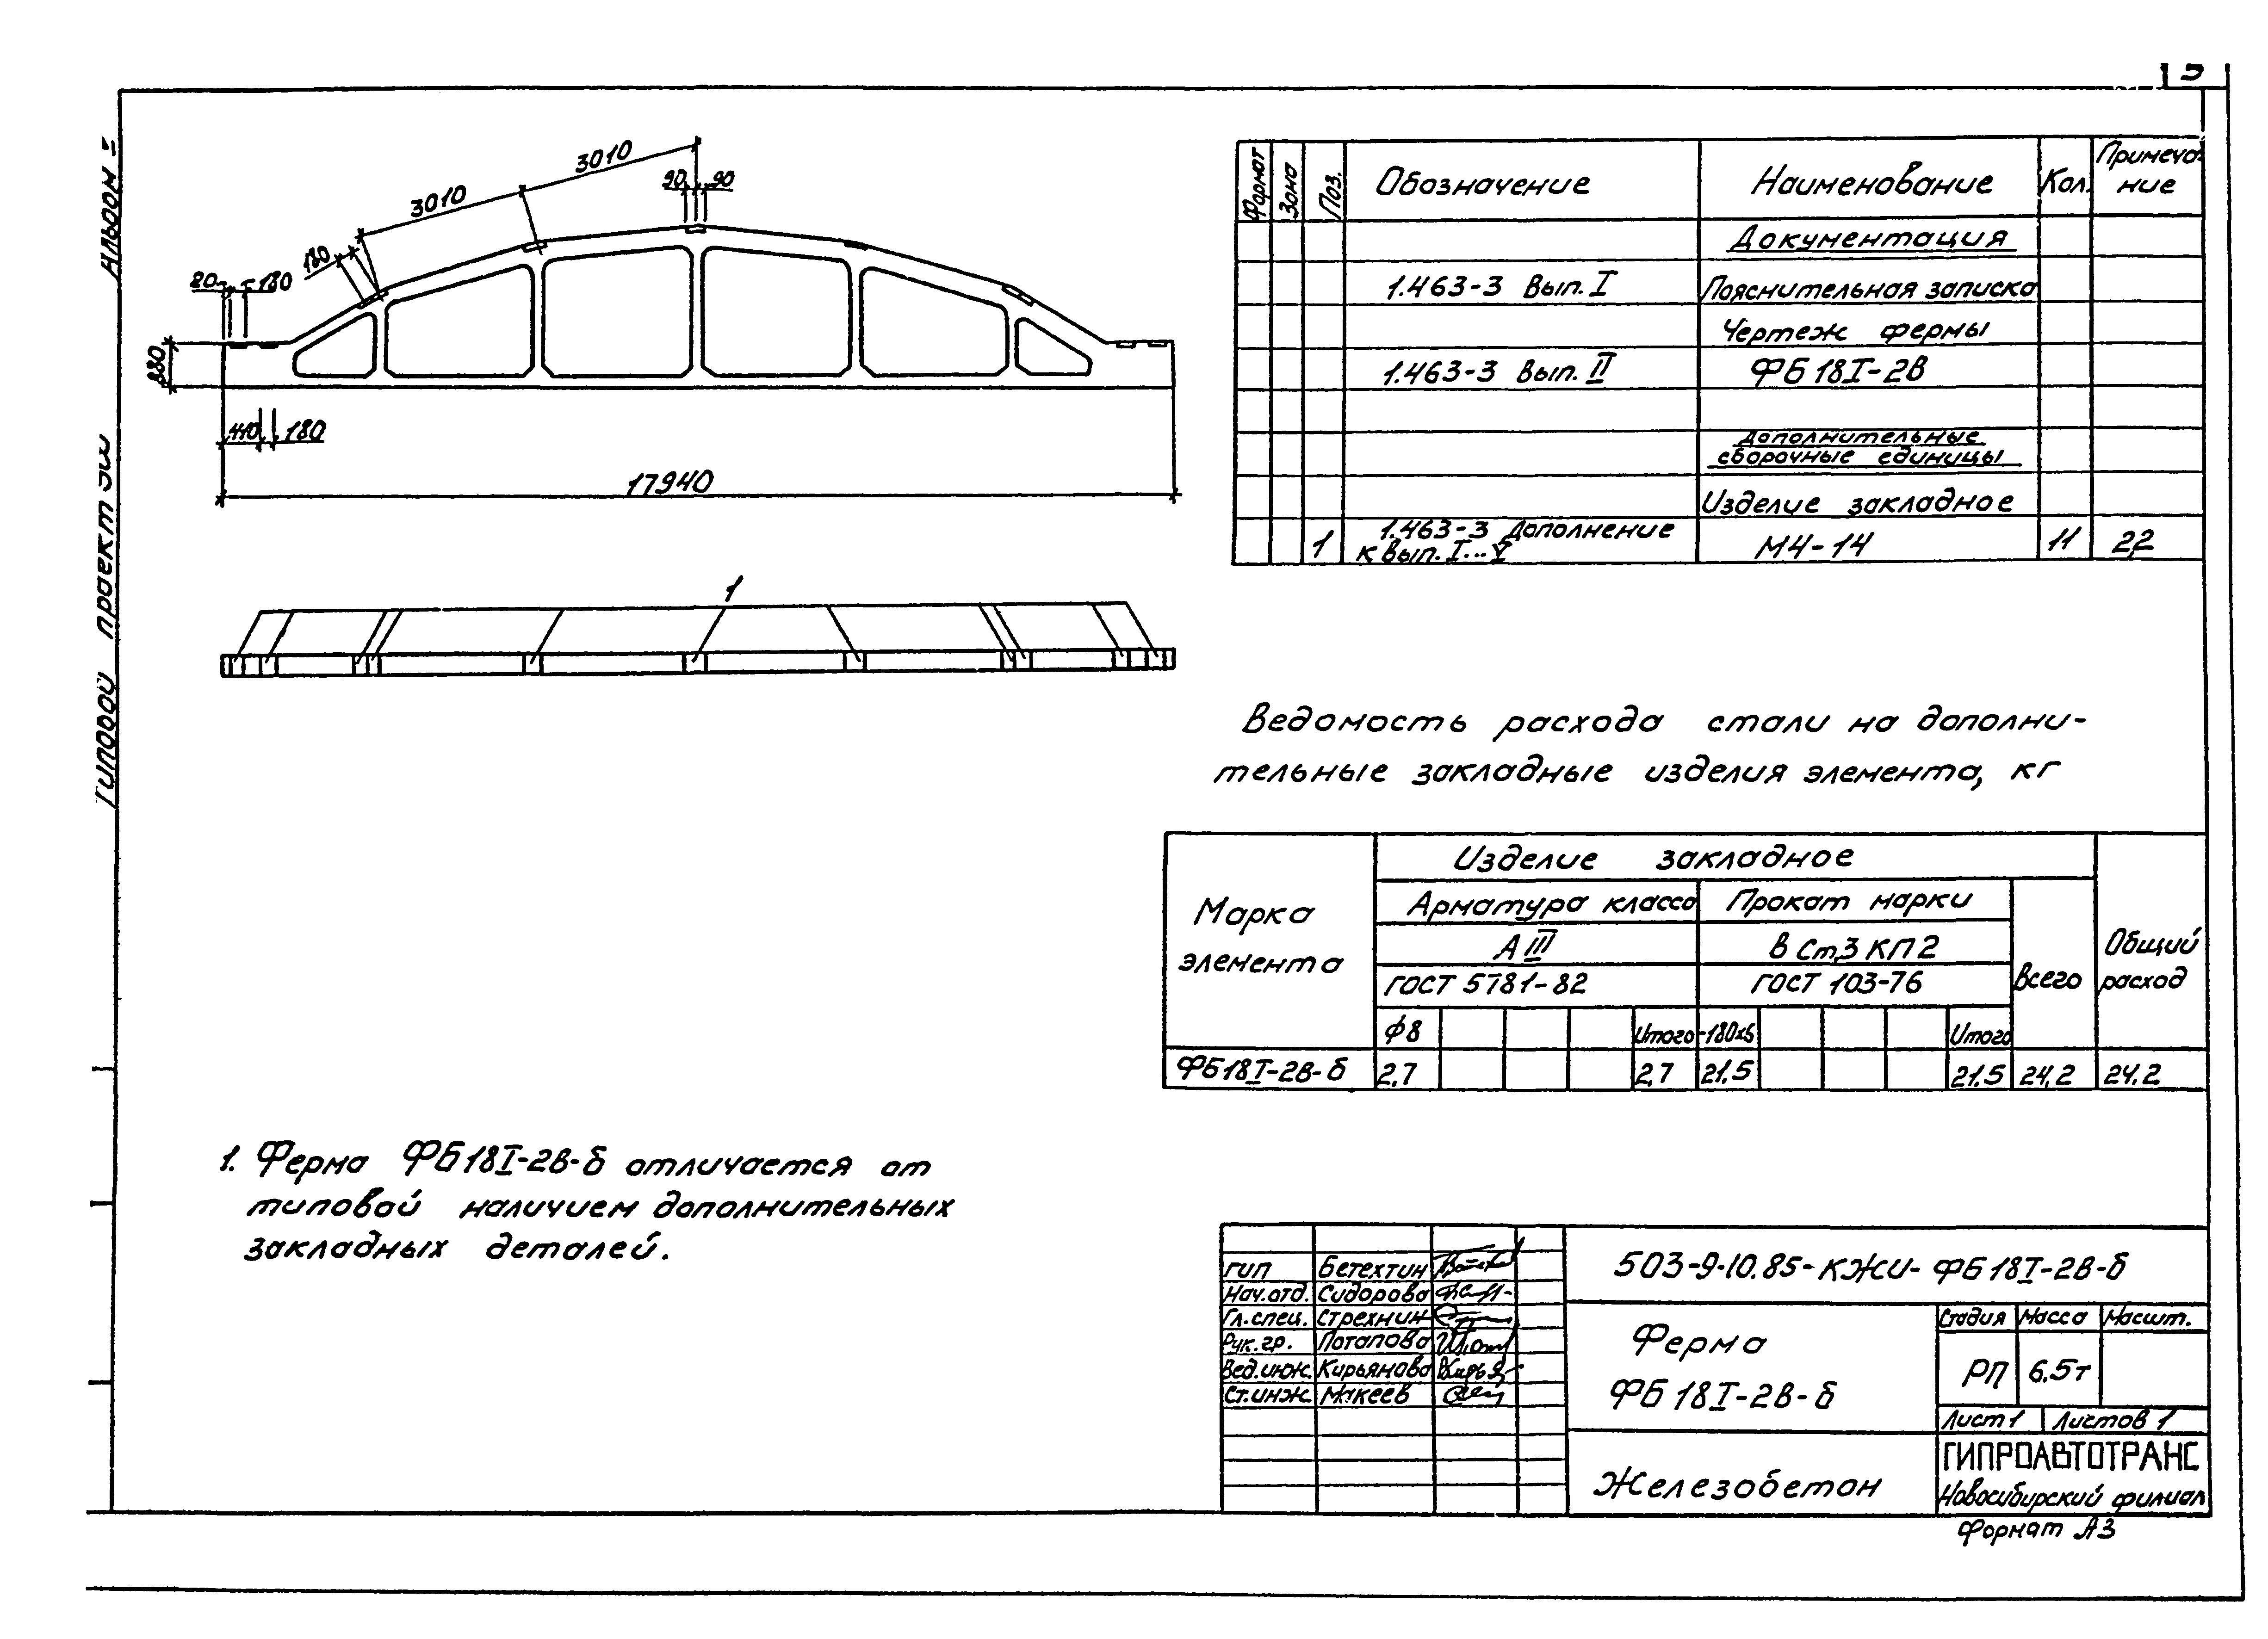 Альбом
Типовой проект
3010
3010
90
90
180
80
180
880
440
180
17940
1
Формат
Зона
Поз.
Обозначение
Наименование
Кол.
Примеча-
ние
Документация
1.463-3 Вып. I
Пояснительная записка
Чертеж фермы
1.463-3 Вып. II
ФБ 18I-2В
Дополнительные
сборочные единицы
Изделие закладное
1
1.463-3 Дополнение
к вып. I...V
М4-14
11
2,2
Ведомость расхода стали на дополни-
тельные закладные изделия элемента, кг
Марка
элемента
Изделие закладное
Арматура класса
Прокат марки
А III
В Ст.3 КП 2
ГОСТ 5781-82
ГОСТ 103-76
Всего
Общий
расход
ф8
Итого
-180х6
Итого
ФБ18I-2В-б
2,7
2,7
21.5
21.5
24,2
24.2
1. Ферма ФБ18I-2В-б отличается от
типовой наличием дополнительных
закладных деталей.
ГИП Бетехтин
Нач.отд. Сидорова
Гл.спец. Стрехнин
Рук.гр. Потапова
Вед.инж. Кирьянова
Ст.инж. Макеев
503-9-10.85-КЖИ-ФБ18I-2В-б
Ферма
ФБ 18I-2В-б
Стадия Масса Масшт.
РП 6.5т
Лист 1 Листов 1
Железобетон
ГИПРОАВТОТРАНС
Новосибирский филиал
Формат А3